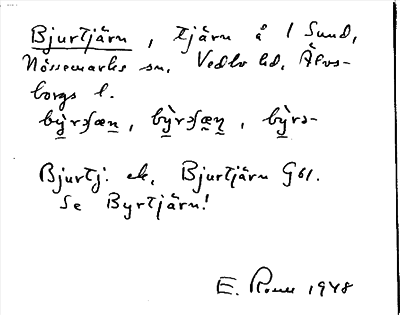 Bjurtjärn, tjärn å 1 Sund,
Nössemarks sn, Vedbo hd, Älvs-
borgs l.
bỳ̠rʃæn̠, bỳ̠rʃæ̠n̠, bỳ̠rə-
Bjurtj. ek, Bjurtjärn Gbl.
Se Byrtjärn!
E. 1948